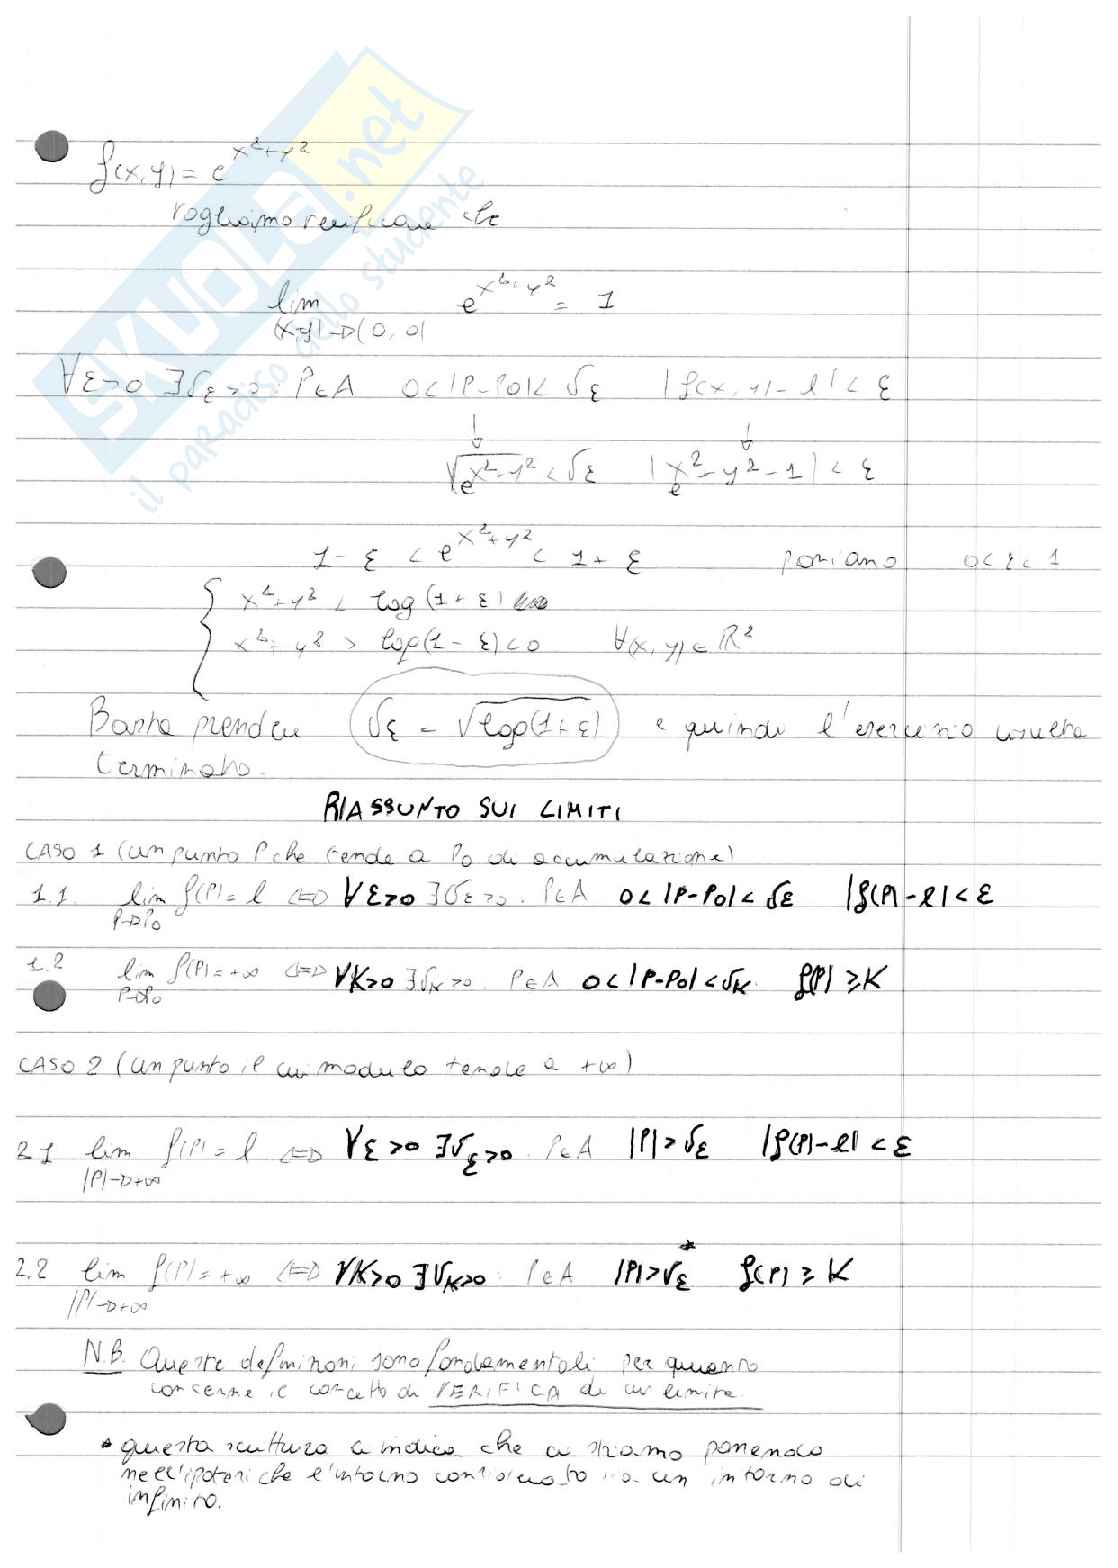 SKUOLA.net
il paradiso dello studente
f(x,y) = e^{x²+y²}
vogliamo verificare che
lim e^{x²+y²} = 1
(x,y)→(0,0)
∀ε>0 ∃δε>0 : P∈A 0<|P-P0|<δε |f(x,y)-l|<ε
↓ ↓
√e^{x²-y²} < δε |e^{x²-y²}-1| < ε
1-ε < e^{x²+y²} < 1+ε poniamo 0<ε<1
x²+y² < log(1+ε)
x²+y² > log(1-ε)<0 ∀(x,y)∈R²
Basta prendere δε = √log(1+ε) e quindi l'esercizio risulta
terminato.
RIASSUNTO SUI LIMITI
CASO 1 (un punto P che tende a P0 di accumulazione)
1.1. lim f(P)=l ⇔ ∀ε>0 ∃δε>0 : P∈A 0<|P-P0|<δε |f(P)-l|<ε
P→P0
1.2 lim f(P)=+∞ ⇔ ∀K>0 ∃δK>0 : P∈A 0<|P-P0|<δK f(P)≥K
P→P0
CASO 2 (un punto il cui modulo tende a +∞)
2.1 lim f(P)=l ⇔ ∀ε>0 ∃δε>0 : P∈A |P|>δε |f(P)-l|<ε
|P|→+∞
2.2 lim f(P)=+∞ ⇔ ∀K>0 ∃δK>0 : P∈A |P|>δε* f(P)≥K
|P|→+∞
N.B. Queste definizioni sono fondamentali per quanto
concerne il concetto di VERIFICA di un limite.
* questa scrittura ci indica che ci stiamo ponendo
nell'ipotesi che l'intorno considerato sia un intorno di
infinito.